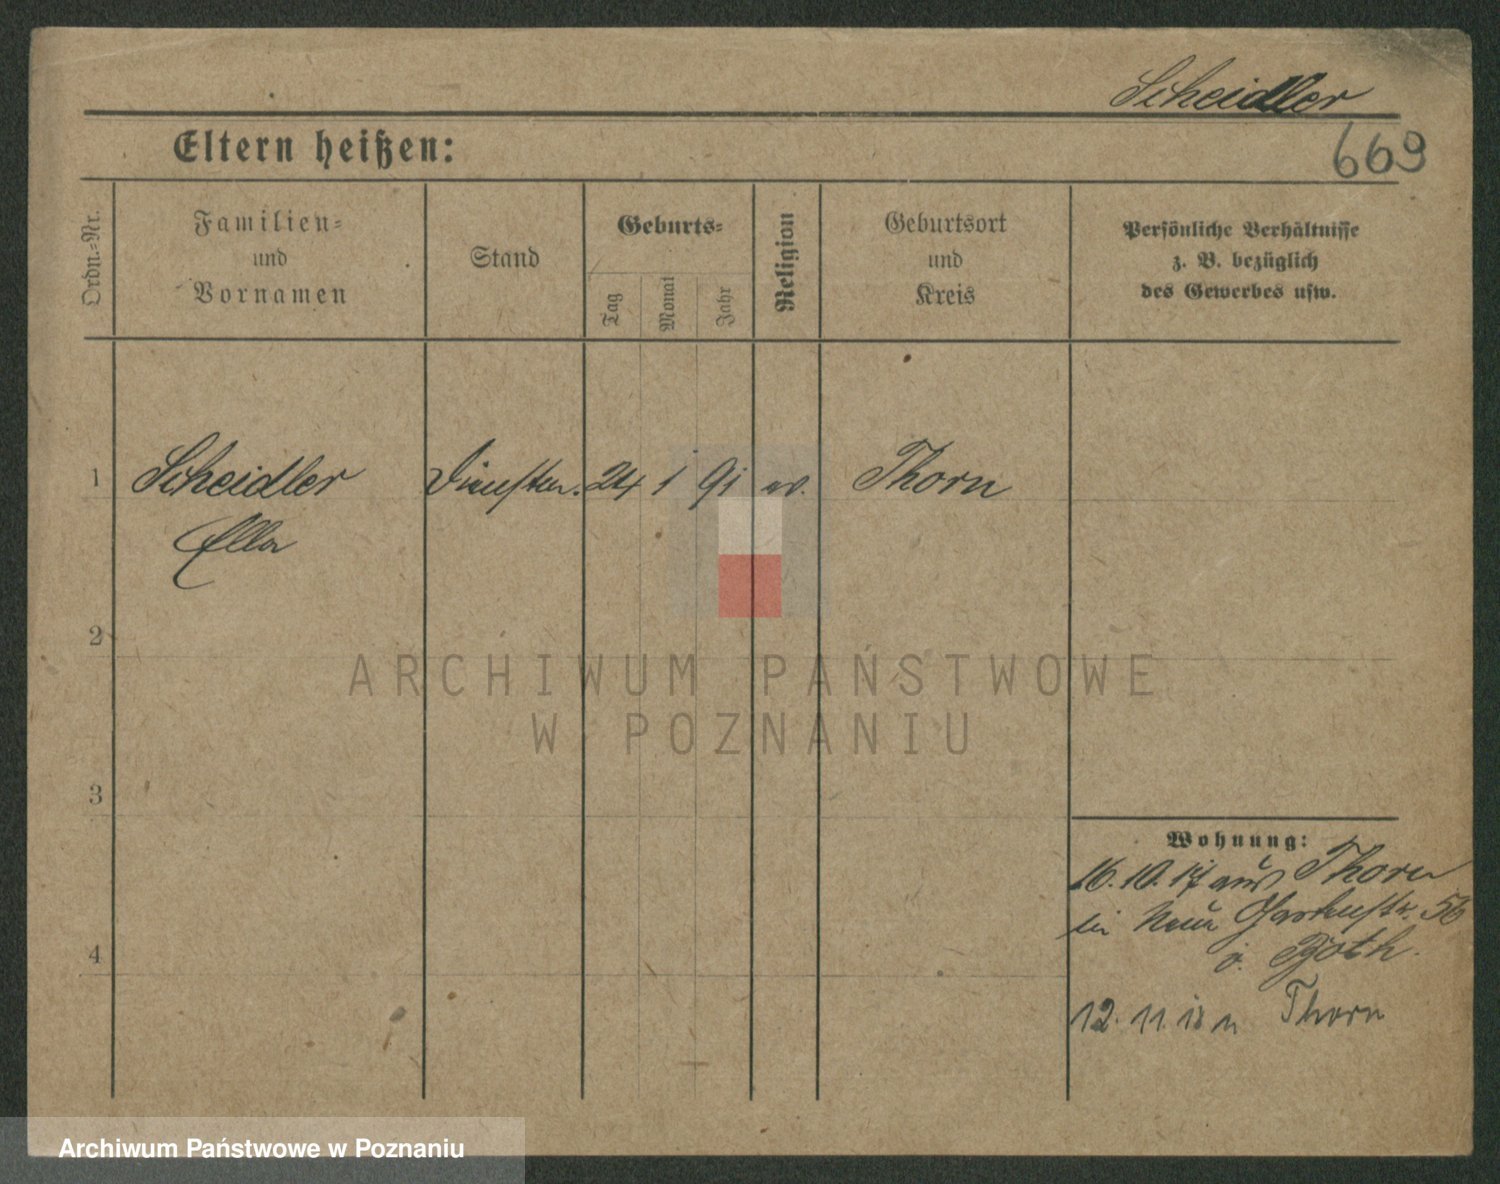 Scheidler
669
Eltern heißen:
Ordn.-Nr.
Familien-
und
Vornamen
Stand
Geburts-
Tag
Monat
Jahr
Religion
Geburtsort
und
Kreis
Persönliche Verhältnisse
z. B. bezüglich
des Gewerbes usw.
1 Scheidler 24 1 91 ev. Thorn
Ella
2
3
4
ARCHIWUM PAŃSTWOWE
W POZNANIU
Wohnung:
16. 10. 17 aus Thorn
Neue Gartenstr. 56
12. 11. 18 n Thorn
Archiwum Państwowe w Poznaniu